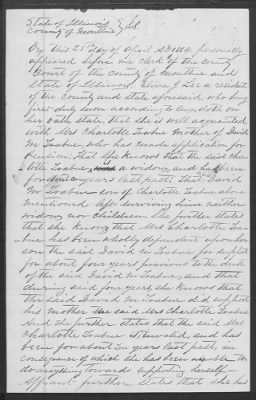 State of Illinois } SS
County of Moultrie
On this 25th day of April AD 1864, personally
appeared before me clerk of the county
Court of the County of Moultrie and
State of Illinois, J Lee a resident
of the County and State aforesaid who being
first duly sworn according to law, doth on
her oath state that she is well acquainted
with Mrs Charlotte Trabue Mother of David
M Trabue, who has made application for
Pension; That she knows that the said Char
lotte Trabue, is a widow, and has been
for years last past. That David
M Trabue son of Charlotte Trabue above
mentioned left surviving him neither
widow nor children. She further states
that she knows that Mrs Charlotte Tra
bue has been wholly dependent upon her
son the said David M Trabue for support
for about four years previous to the death
of the said David M Trabue, and that
during said four years she knows that
the said David M Trabue did support
his mother the said Mrs Charlotte Trabue
And she further states that the said Mrs
Charlotte Trabue is Invalid, and has
been for about years last past, in
consequence of which she has been unable to
do anything toward supporting herself
Affiant further states that she has